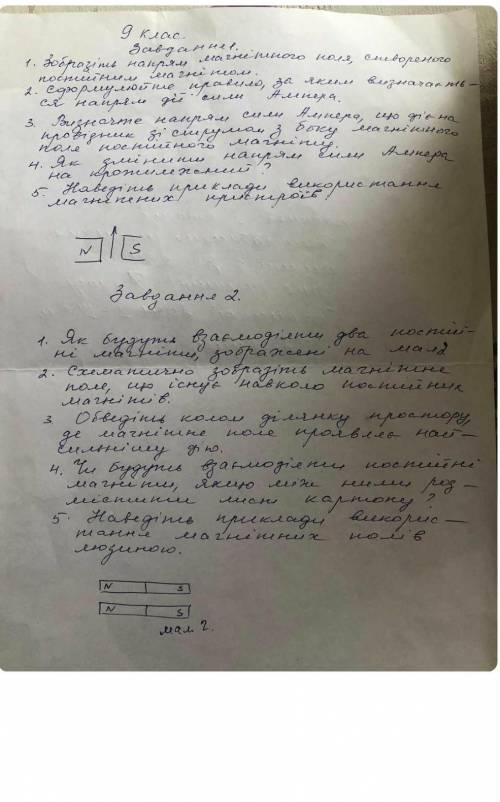 9 клас.
Завдання 1.
1. Зобразіть напрям магнітного поля, створеного
постійним магнітом.
2. Сформулюйте правило, за яким визначаєть-
ся напрям дії сили Ампера.
3. Визначте напрям сили Ампера, що діє на
провідник зі струмом з боку магнітного
поле постійного магніту.
4. Як змінити напрям сили Ампера
на протилежний?
5. Наведіть приклади використання
магнітних пристроїв
N S
Завдання 2.
1. Як будуть взаємодіяти два постій-
ні магніти, зображені на мал2
2. Схематично зобразіть магнітне
поле, що існує навколо постійних
магнітів.
3. Обведіть колом ділянку простору,
де магнітне поле проявляє най-
сильнішу дію.
4. Чи будуть взаємодіяти постійні
магніти, якщо між ними роз-
містити лист картону?
5. Наведіть приклади викорис-
тання магнітних полів
людиною.
N S
N S
мал 2.